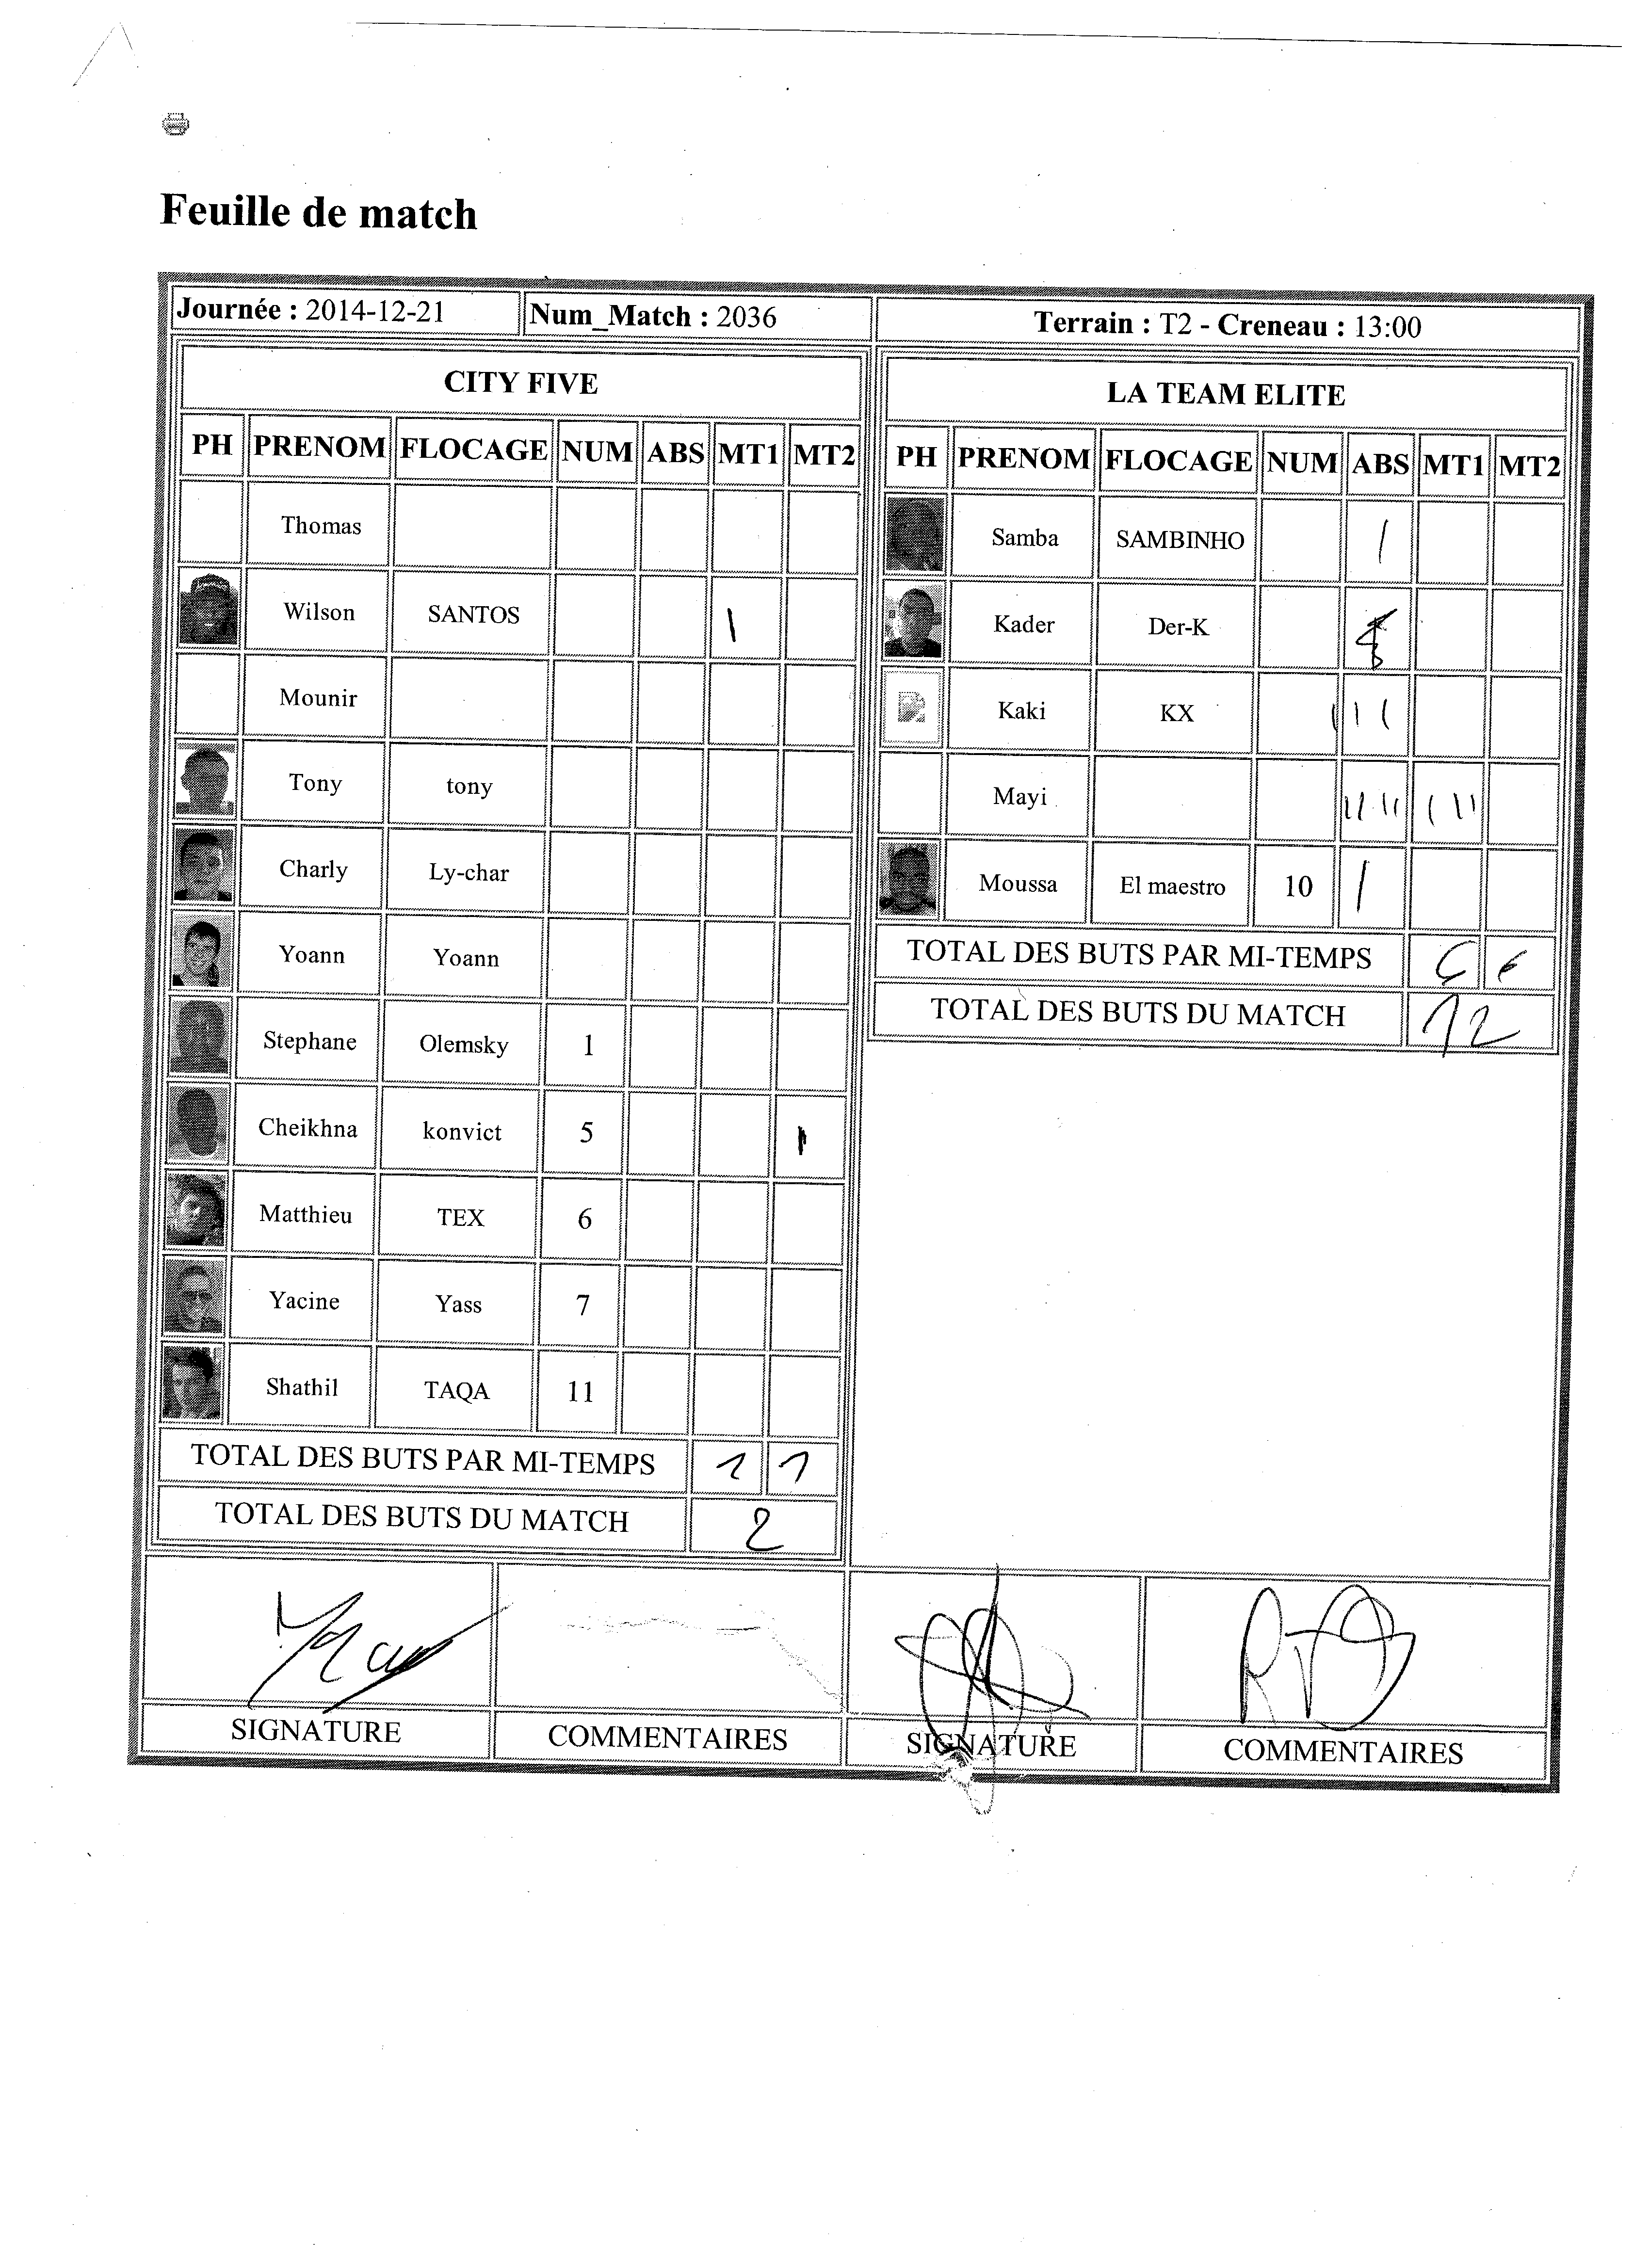 Feuille de match
Journée : 2014-12-21 Num_Match : 2036 Terrain : T2 - Creneau : 13:00
CITY FIVE
PH PRENOM FLOCAGE NUM ABS MT1 MT2
Thomas
Wilson SANTOS
Mounir
Tony tony
Charly Ly-char
Yoann Yoann
Stephane Olemsky 1
Cheikhna konvict 5
Matthieu TEX 6
Yacine Yass 7
Shathil TAQA 11
TOTAL DES BUTS PAR MI-TEMPS 1 1
TOTAL DES BUTS DU MATCH 2
LA TEAM ELITE
PH PRENOM FLOCAGE NUM ABS MT1 MT2
Samba SAMBINHO
Kader Der-K
Kaki KX
Mayi
Moussa El maestro 10
TOTAL DES BUTS PAR MI-TEMPS
TOTAL DES BUTS DU MATCH 12
SIGNATURE COMMENTAIRES SIGNATURE COMMENTAIRES